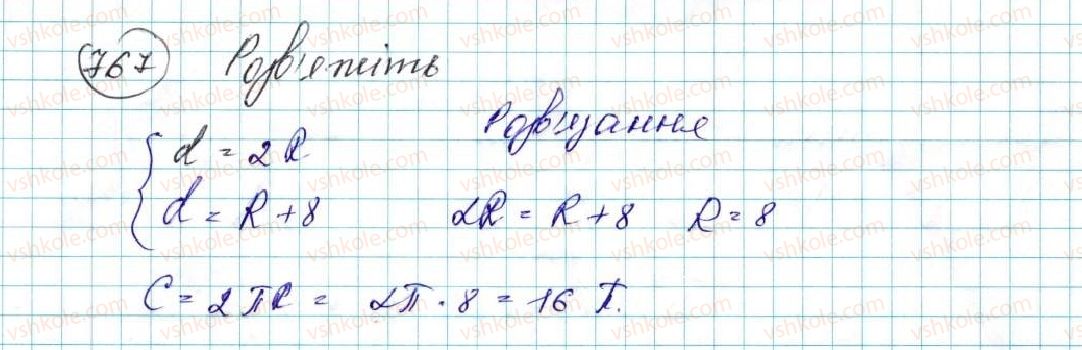 767 Розв'яжіть
Розв'язання
d = 2R
d = R + 8 2R = R + 8 R = 8
C = 2πR = 2π · 8 = 16 π.
vshkole.com